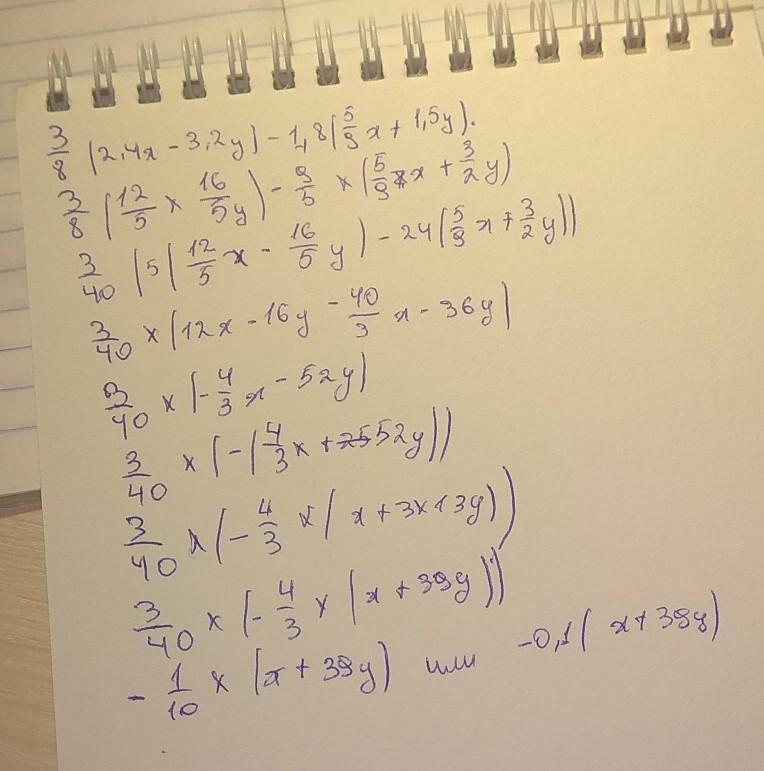 3/8 (2,4x - 3,2y) - 1,8(5/9x + 1,5y).
3/8 (12/5 × 16/5y) - 9/5 × (5/9 x + 3/2y)
3/40 (5(12/5x - 16/5y) - 24(5/9x + 3/2y))
3/40 × (12x - 16y - 40/3x - 36y)
3/40 × (-4/3x - 52y)
3/40 × (-(4/3x + 52y))
3/40 × (-4/3 × (x + 3×13y))
3/40 × (-4/3 × (x + 39y))
- 1/10 × (x + 39y) или -0,1(x + 39y)